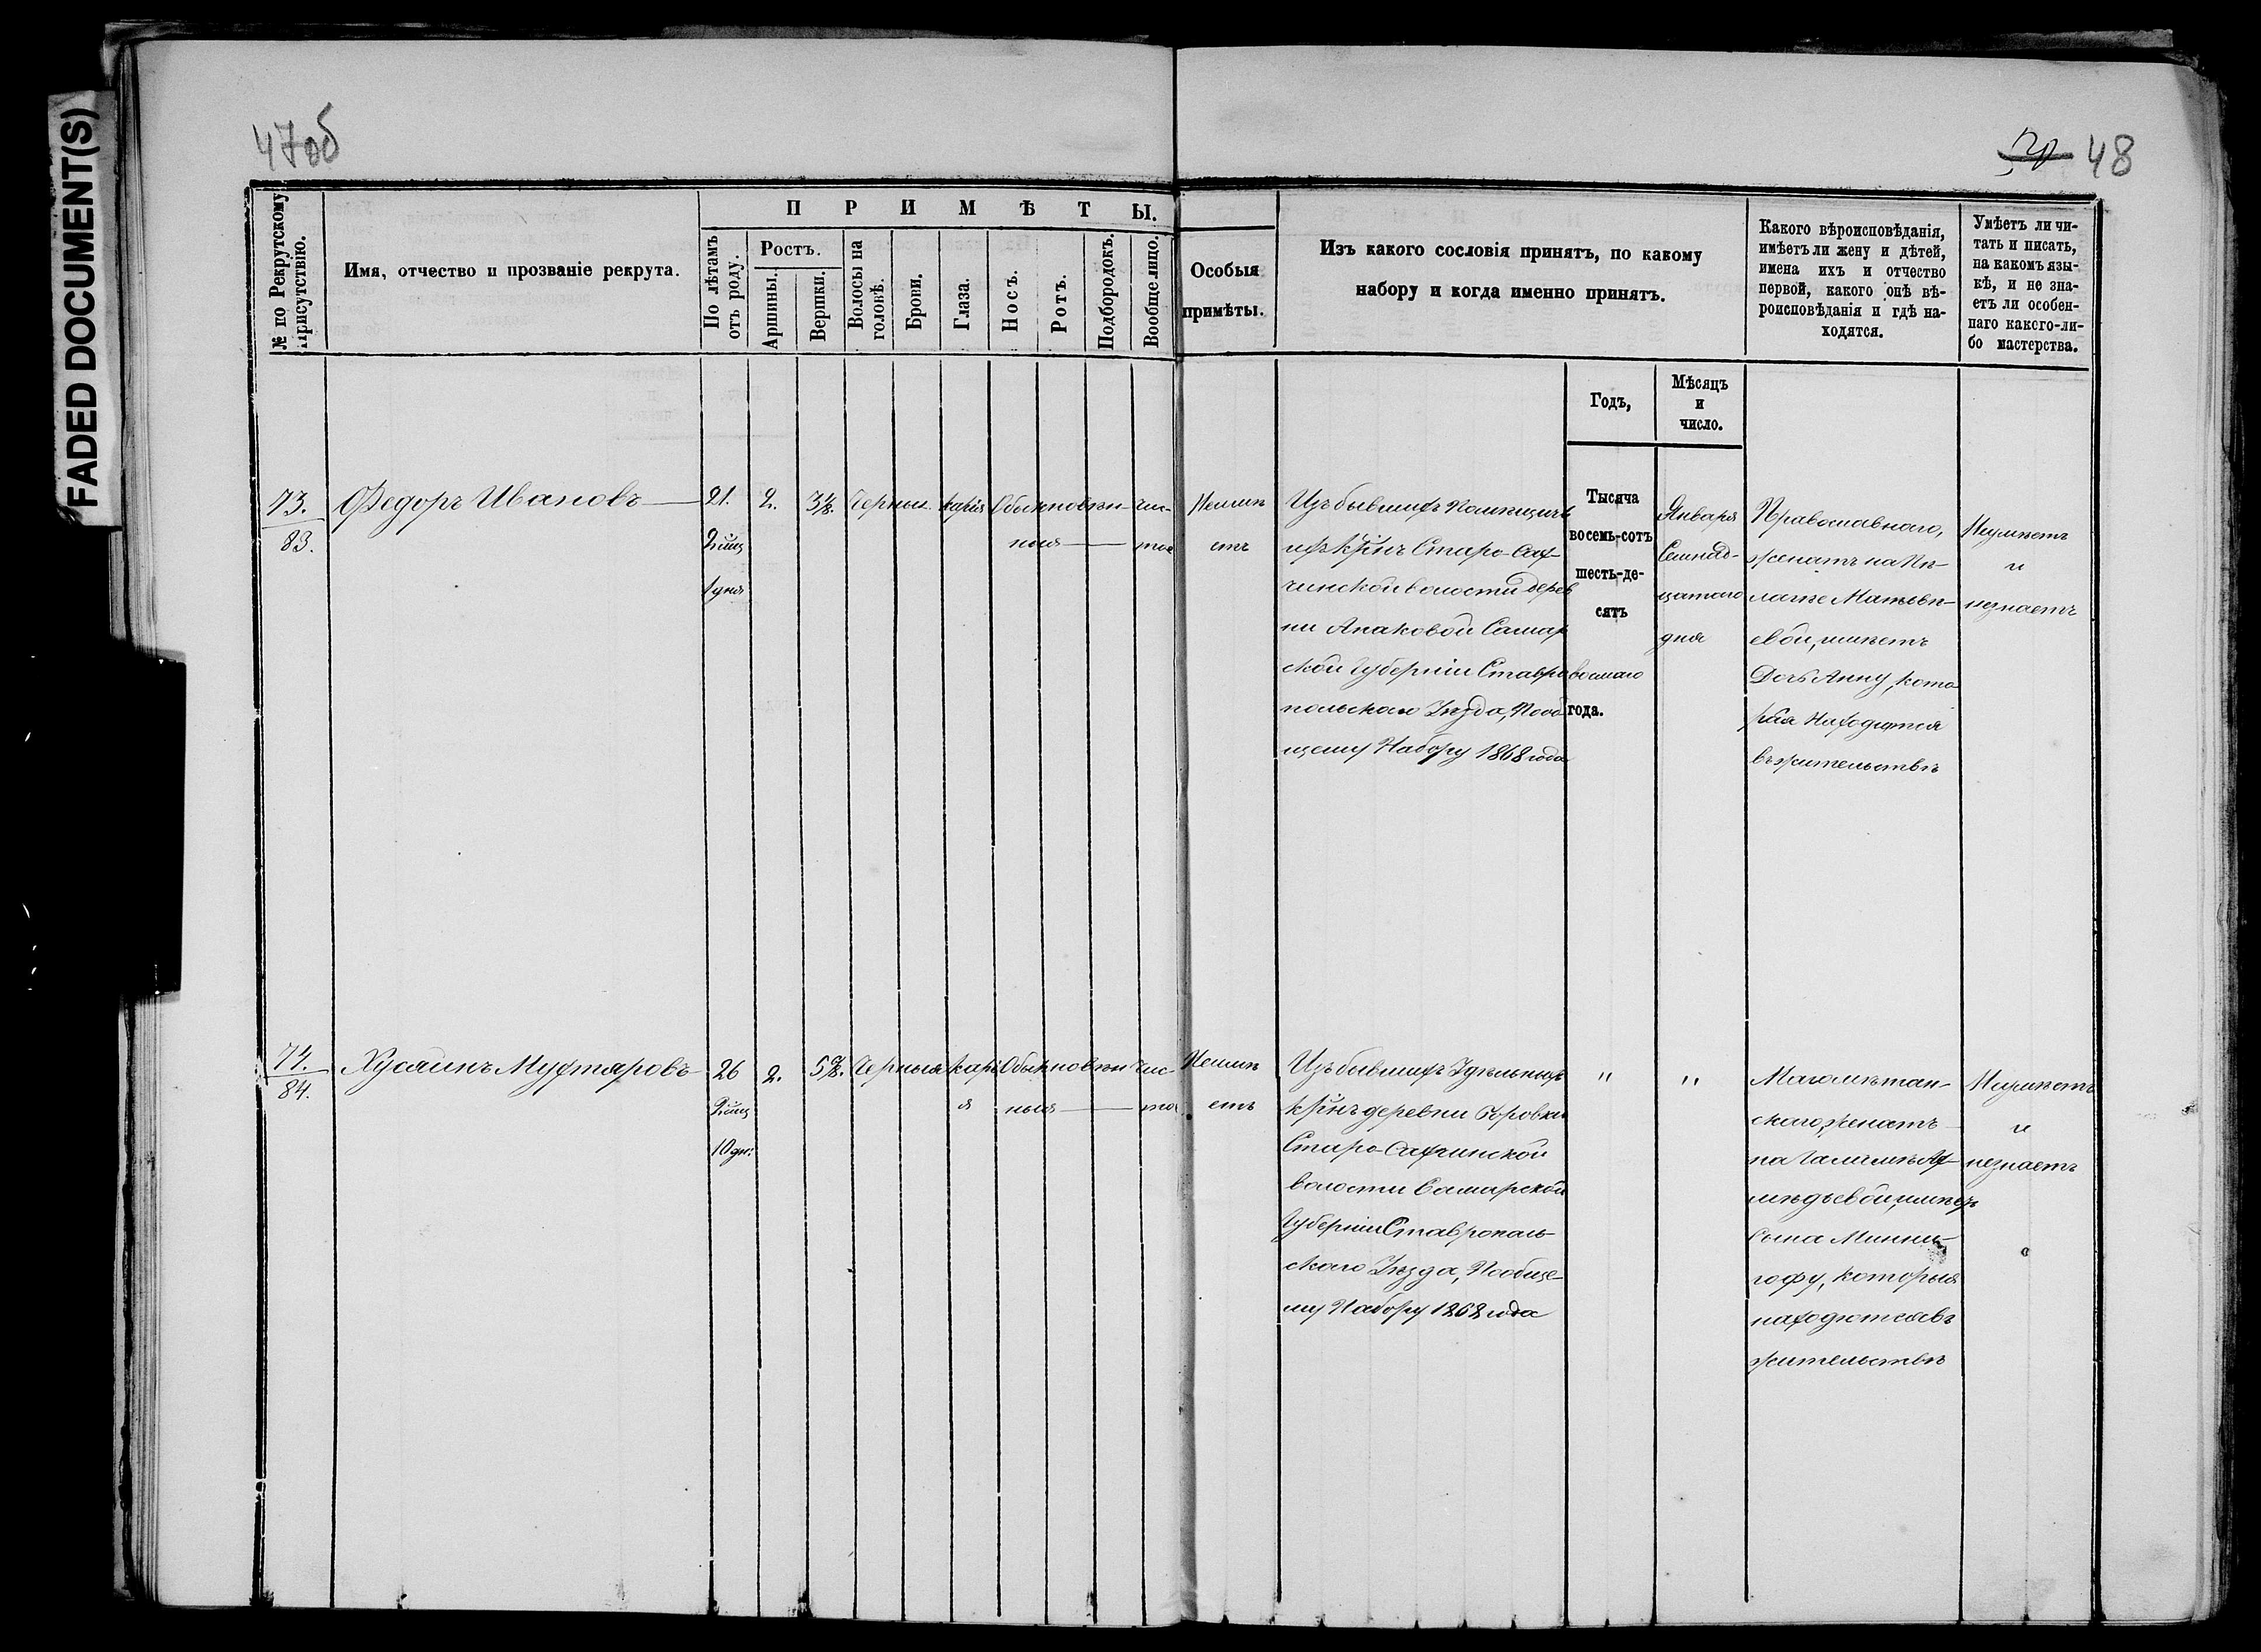 FADED DOCUMENT(S)
47об
48
№ по Рекрутскому присутствію.
Имя, отчество и прозваніе рекрута.
ПРИМѢТЫ.
По лѣтамъ отъ роду.
Ростъ.
Аршины.
Вершки.
Волосы на головѣ.
Брови.
Глаза.
Носъ.
Ротъ.
Подбородокъ.
Вообще лицо.
Особыя
примѣты.
Изъ какого сословія принятъ, по какому
набору и когда именно принятъ.
Какого вѣроисповѣданія,
имѣетъ ли жену и дѣтей,
имена ихъ и отчество
первой, какого онѣ вѣ-
роисповѣданія и гдѣ на-
ходятся.
Умѣетъ ли чи-
тать и писать,
на какомъ язы-
кѣ, и не зна-
етъ ли особен-
наго какого-ли-
бо мастерства.
Годъ,
Мѣсяцъ
и
число.
73.
83.
Федоръ Ивановъ
21.
1 дня
2.
Черныя
карія
Обыкновен-
ныя
чис-
тое
Неимѣ
етъ
Изъ бывшихъ Помѣщичь
ихъ кр̃інъ Старо-Сах-
чинской волости дерев
ни Апаковой Самар
ской Губерніи Ставро
польскаго Уѣзда, Пооб
щему Набору 1868 года
Тысяча
восемь-сотъ
шесть-де-
сятъ
восмаго
года.
Января
Семнад-
цатого
дня
Православнаго,
женатъ на Пе-
лагѣе Матвѣ-
евой, имѣетъ
Дочь Анну, кото
рая Находится
въ жительствѣ
Неумѣетъ
и
незнаетъ
74.
84.
Хусаинъ Муфтяровъ
26
10 дн:
2.
Черныя
карі
я
Обыкновен
ныя
чис-
тое
Неимѣ
етъ
Изъ бывшихъ Удѣльныхъ
кр̃інъ деревни Боровки
Старо-Сахчинской
волости Самарской
Губерніи Ставрополь-
скаго Уѣзда, Пообще-
му Набору 1868 года
"
"
Магометан-
скаго, женатъ
на Галимѣ Ах-
мѣдьевой, имѣетъ
Сына Минни-
гофу, которыя
находются въ
жительствѣ
Неумѣетъ
и
незнаетъ